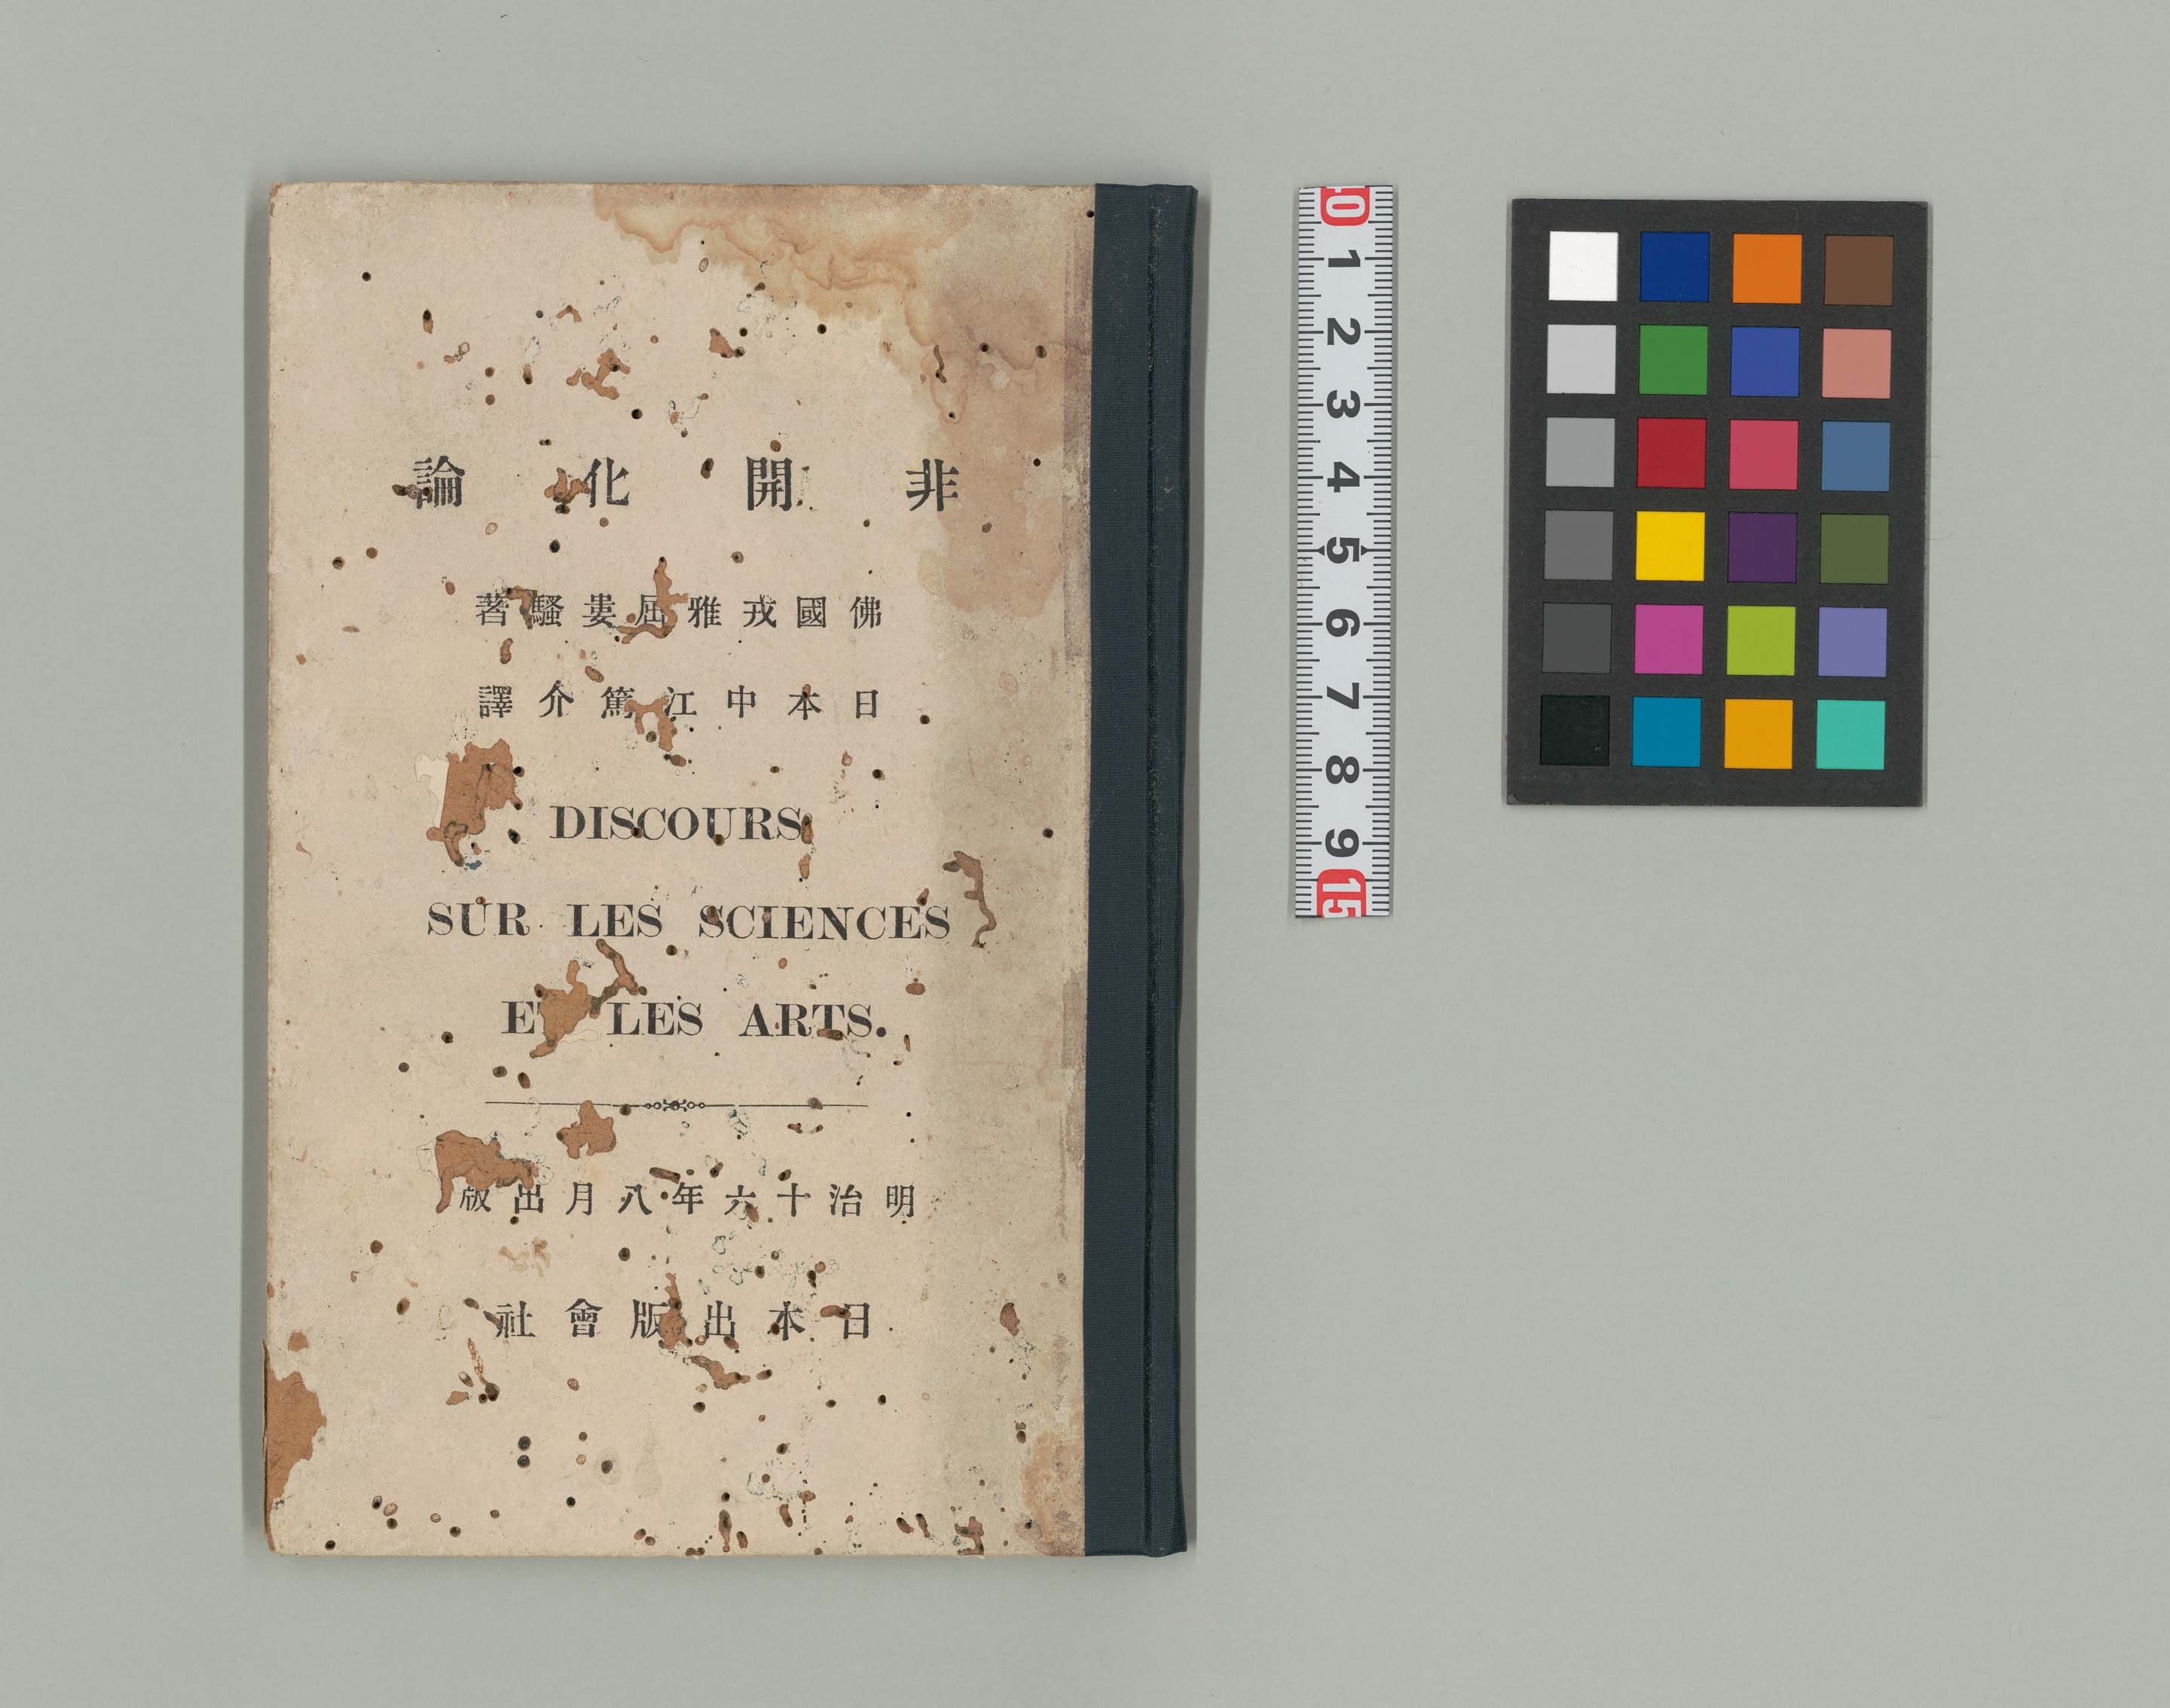 非開化論
佛國戎雅屈婁騷著
日本中江篤介譯
DISCOURS
SUR LES SCIENCES
ET LES ARTS.
明治十六年八月出版
日本出版會社
10 1 2 3 4 5 6 7 8 9 15